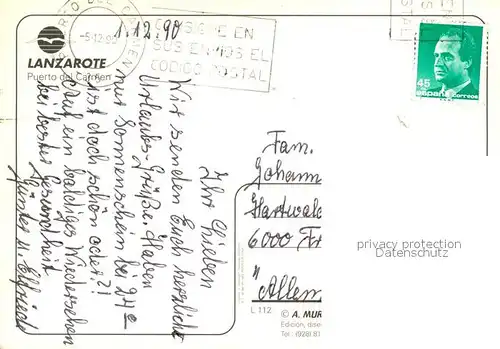 PUERTO DEL CARMEN
-5-12-90
1.12.90
CONSIGNE EN
SUS ENVIOS EL
CODIGO POSTAL
LANZAROTE
Puerto del Carmen
45
españa correos
Ihr Lieben
Wir senden Euch herzliche
Urlaubs-Grüße. Haben
nur Sonnenschein bei 24°
ist doch schön oder?!
Auf ein baldiges Wiedersehen
bei bester Gesundheit
Günter u. Elfriede
Fam.
Johann
Hartwald
6000 Fr
Allem
privacy protection
Datenschutz
L 112
© A. MUR
Edición, dise
Tel: (928) 81